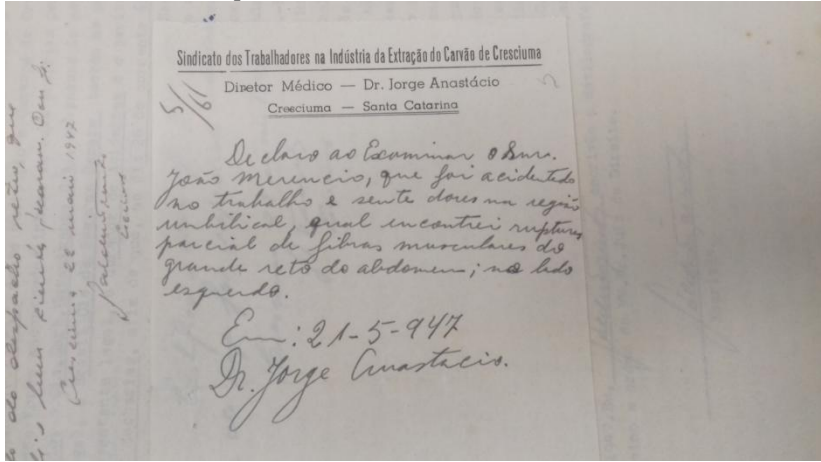 Sindicato dos Trabalhadores na Indústria da Extração do Carvão de Cresciuma
Diretor Médico — Dr. Jorge Anastácio
Cresciuma — Santa Catarina
5/61
Declaro ao Examinar o Snr.
João Merencio, que foi acidentado
no trabalho e sente dores na região
umbilical, qual encontrei ruptura
parcial de fibras musculares do
grande reto do abdomem; no lado
esquerdo.
Em: 21-5-947
Dr. Jorge Anastacio.
do despacho retro, que
Dou fé.
Cresciuma 22 maio 1947